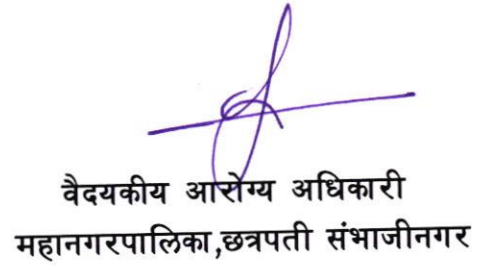 वैदयकीय आरोग्य अधिकारी
महानगरपालिका,छत्रपती संभाजीनगर